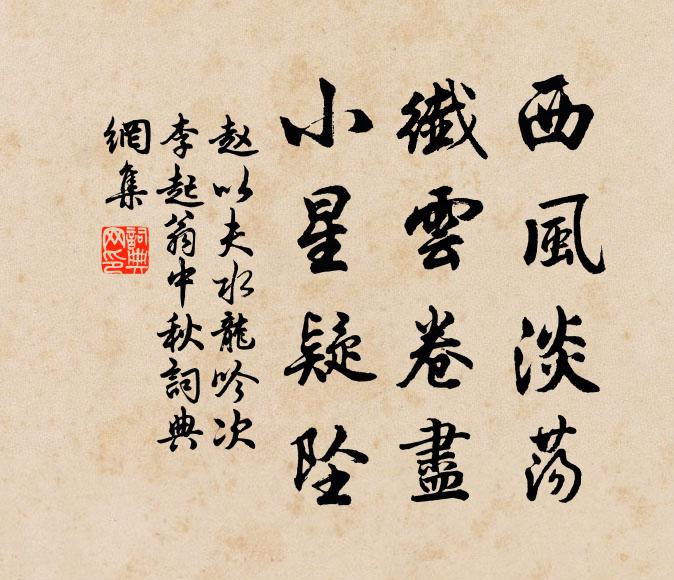 西風淡蕩
纖雲卷盡
小星疑墜
赵以夫水龍吟次
李起翁中秋詞典
網集
詞典
网印